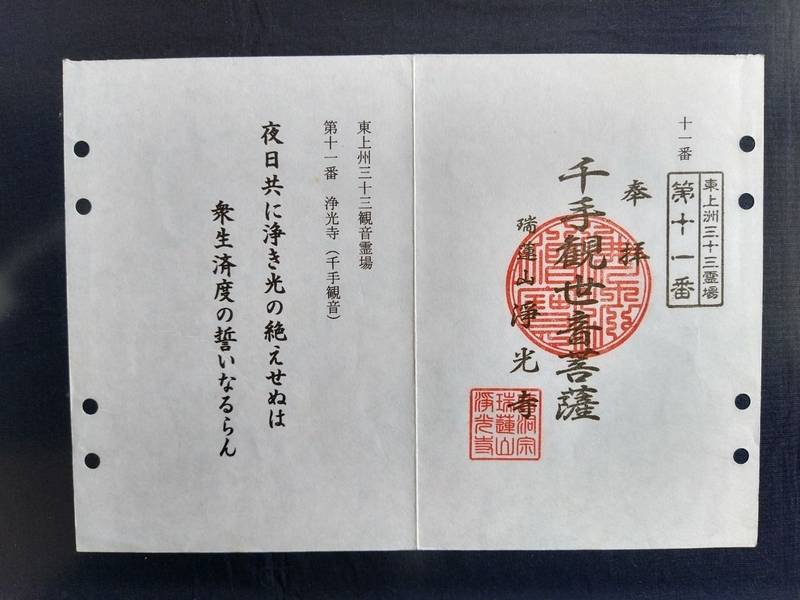 十一番
東上洲三十三霊場
第十一番
奉拝
千手観世音菩薩
瑞蓮山浄光寺
曹洞宗
瑞蓮山
浄光寺
東上州三十三観音霊場
第十一番 浄光寺（千手観音）
夜日共に浄き光の絶えせぬは
衆生済度の誓いなるらん